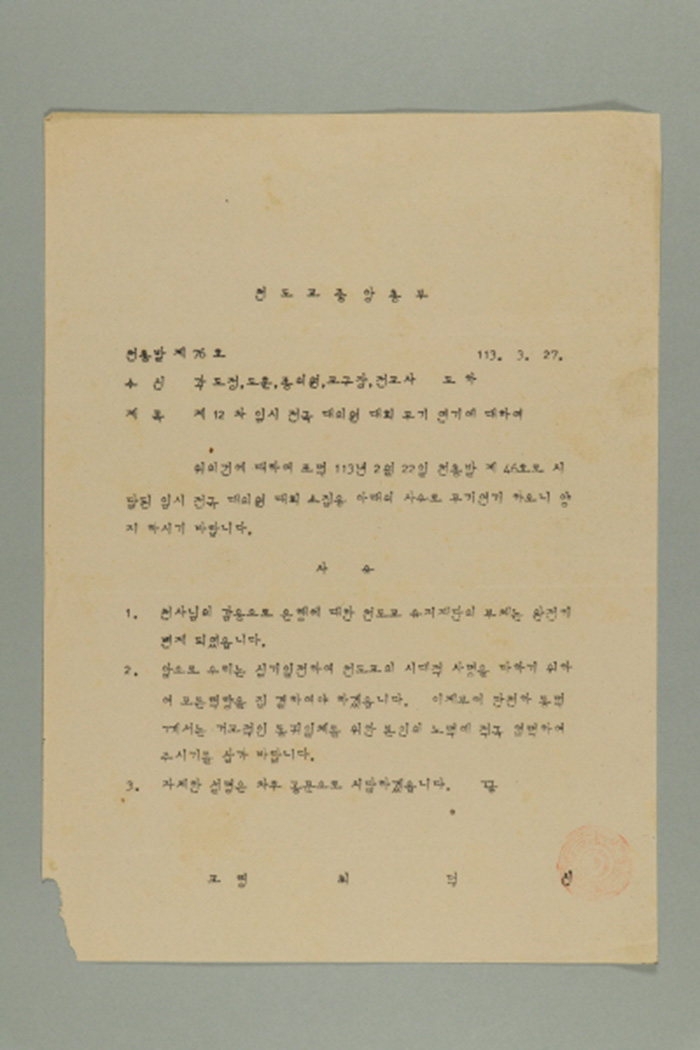 천 도 교 중 앙 총 부
천총발 제 76 호 113. 3. 27.
수 신 각 도정,도훈,종의원,교구장,전교사 도 하
제 목 제 12 차 임시 전국 대의원 대회 무기 연기에 대하여
위의건에 대하여 포덕 113년 2월 22일 천총발 제 46호로 시
달된 임시 전국 대의원 대회 소집을 아래의 사유로 무기연기 하오니 양
지 하시기 바랍니다.
사 유
1. 천사님의 감응으로 은행에 대한 천도교 유지재단의 부채는 완전히
변제 되였읍니다.
2. 앞으로 우리는 심기일전하여 천도교의 시대적 사명을 다하기 위하
여 모든역량을 집 결하여야 하겠읍니다. 이제부터 안전하 동덕
께서는 거교적인 동귀일체를 위한 본인의 노력에 적극 협력하여
주시기를 삼가 바랍니다.
3. 자세한 설명은 차후 공문으로 시달하겠읍니다. 끝
교 령 최 덕 신